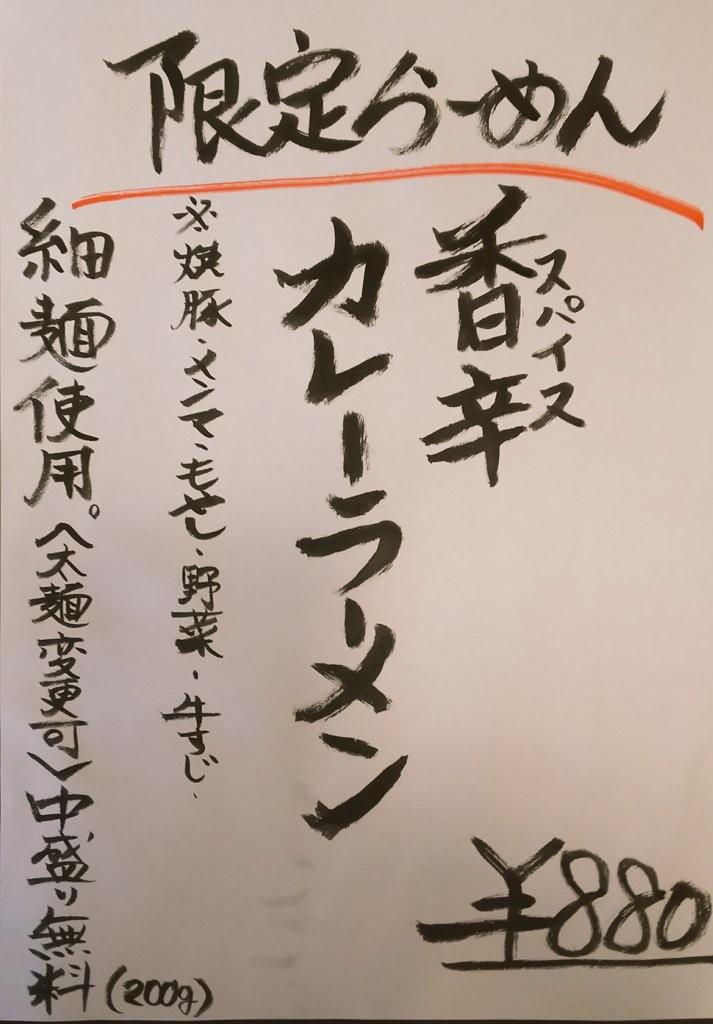 限定らーめん
香辛
スパイス
カレーラーメン
¥880
※焼豚・メンマ・もやし・野菜・牛すじ・
細麺使用。(太麺変更可)中盛り無料(200g)